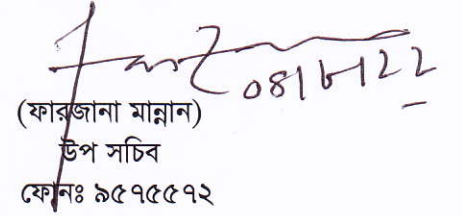 ০৪।৮।২২
(ফারজানা মান্নান)
উপ সচিব
ফোনঃ ৯৫৭৫৫৭২